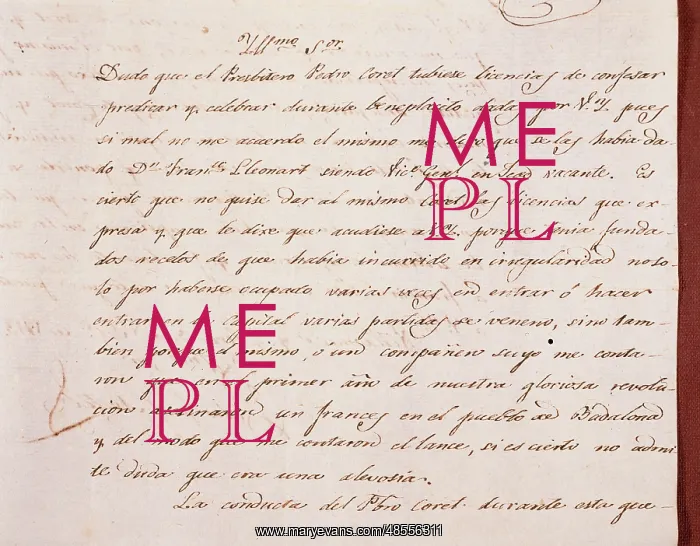 Yllmo. Sor.
Dudo que el Presbitero Pedro Coret tubiese licencias de confesar
predicar y celebrar durante beneplacito dadas por V.S.Y. pues
si mal no me acuerdo el mismo me dijo que se las habia da-
do Dn. Franco. Lleonart siendo Vico. Genl. en Sede vacante. Es
cierto que no quise dar al mismo Coret las licencias que ex-
presa y que le dixe que acudiese a porque tenia funda-
dos recelos de que habia incurrido en irregularidad no so-
lo por haberse ocupado varias veces en entrar ó hacer
entrar en la Capital varias partidas de veneno, sino tam-
bien porque el mismo, ó un compañero suyo me conta-
ron que en primer año de nuestra gloriosa revolu-
cion asesinaron un frances en el pueblo de Badalona
y del modo que me contaron el lance, si es cierto no admi-
te duda que era una alevosia.
La conducta del Pbro Coret durante esta gue-
ME
PL
ME
PL
www.maryevans.com/48556311